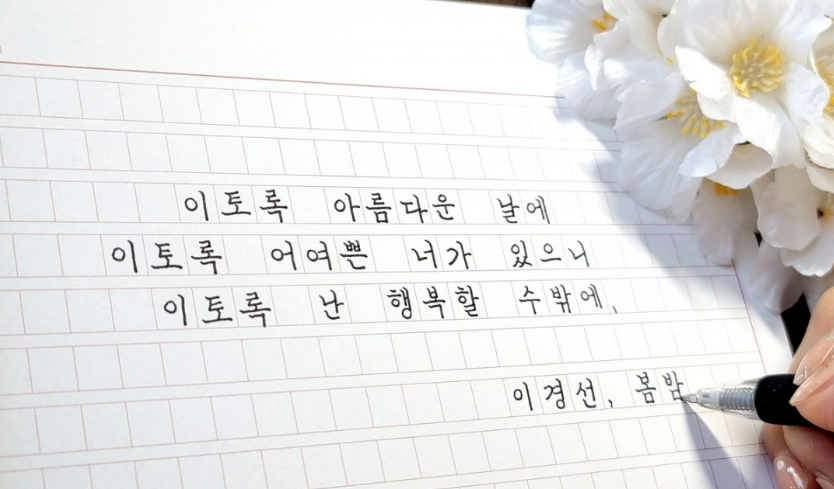 이토록 아름다운 날에
이토록 어여쁜 너가 있으니
이토록 난 행복할 수밖에.
이경선, 봄밤